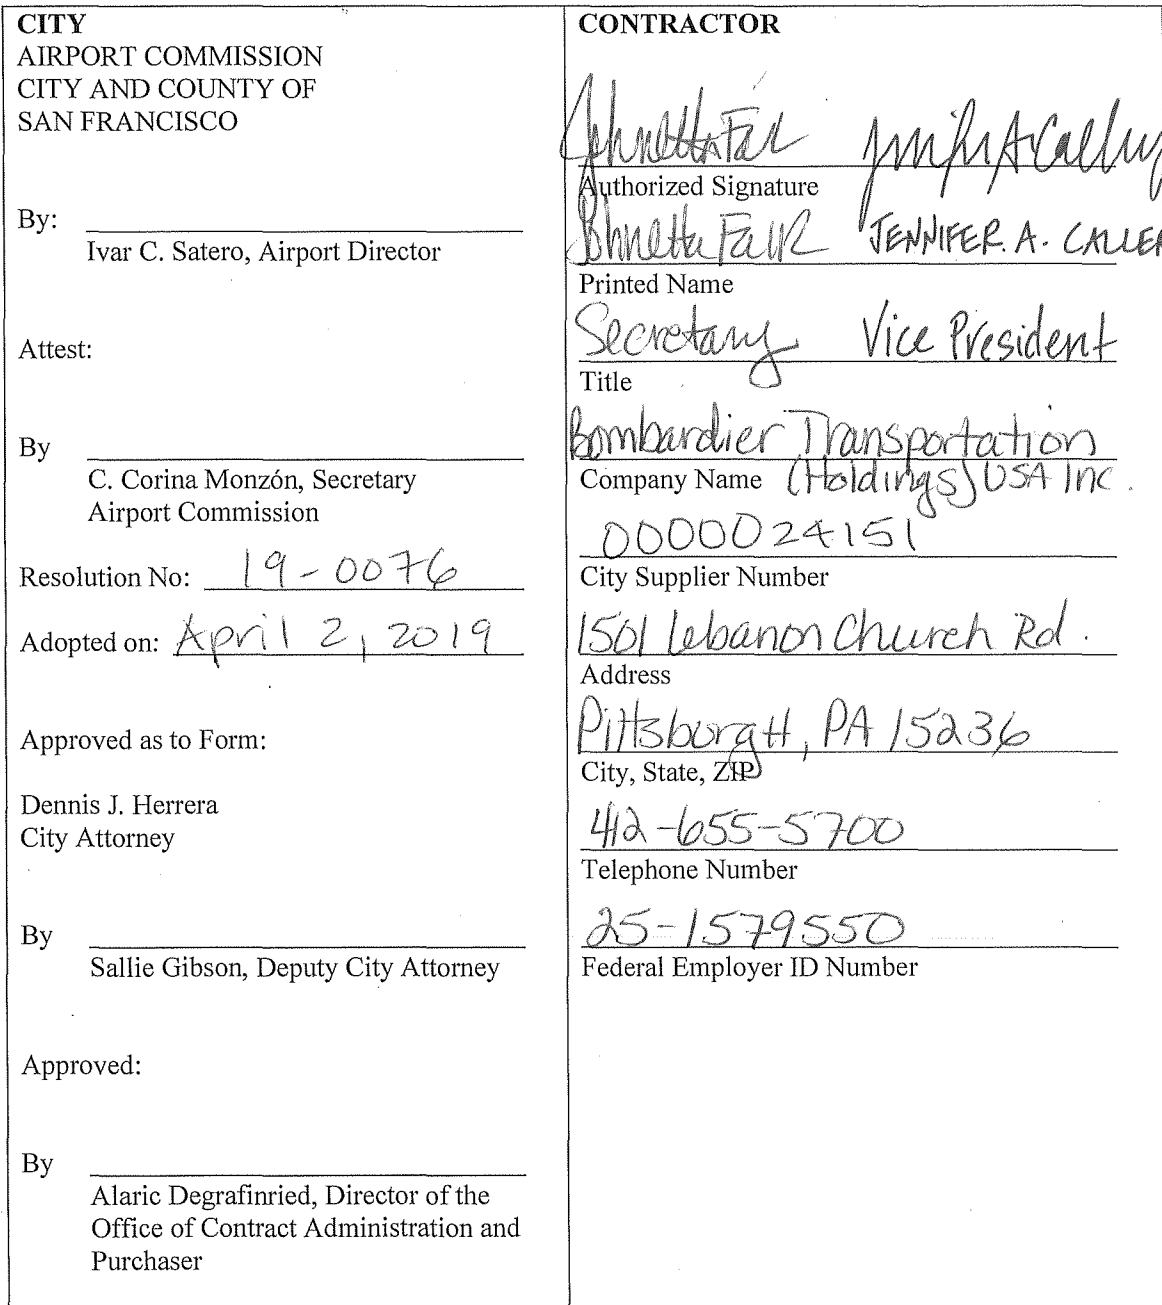 CITY
AIRPORT COMMISSION
CITY AND COUNTY OF
SAN FRANCISCO
By:
Ivar C. Satero, Airport Director
Attest:
By
C. Corina Monzón, Secretary
Airport Commission
Resolution No: 19-0076
Adopted on: April 2, 2019
Approved as to Form:
Dennis J. Herrera
City Attorney
By
Sallie Gibson, Deputy City Attorney
Approved:
By
Alaric Degrafinried, Director of the
Office of Contract Administration and
Purchaser
CONTRACTOR
Johnetta Fair
Authorized Signature
Johnetta Fair JENNIFER. A. CALLEA
Printed Name
Secretary Vice President
Title
Bombardier Transportation
Company Name (Holdings) USA Inc.
0000024151
City Supplier Number
1501 Lebanon Church Rd.
Address
PittsburgH, PA 15236
City, State, ZIP
412-655-5700
Telephone Number
25-1579550
Federal Employer ID Number